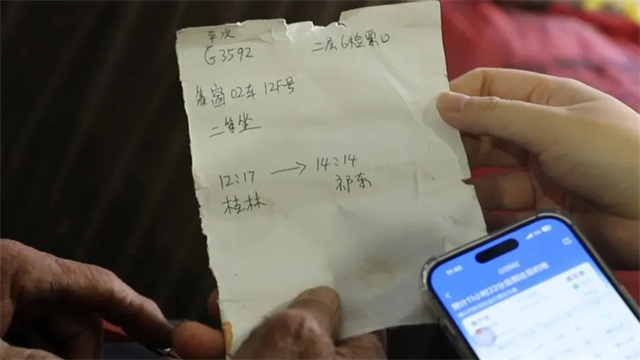 车次
G3592
二层6检票口
靠窗 02车 12F号
二等坐
12:17 → 14:14
桂林 祁东
11:40
G3592